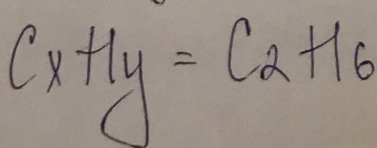 CxHy = C2H6